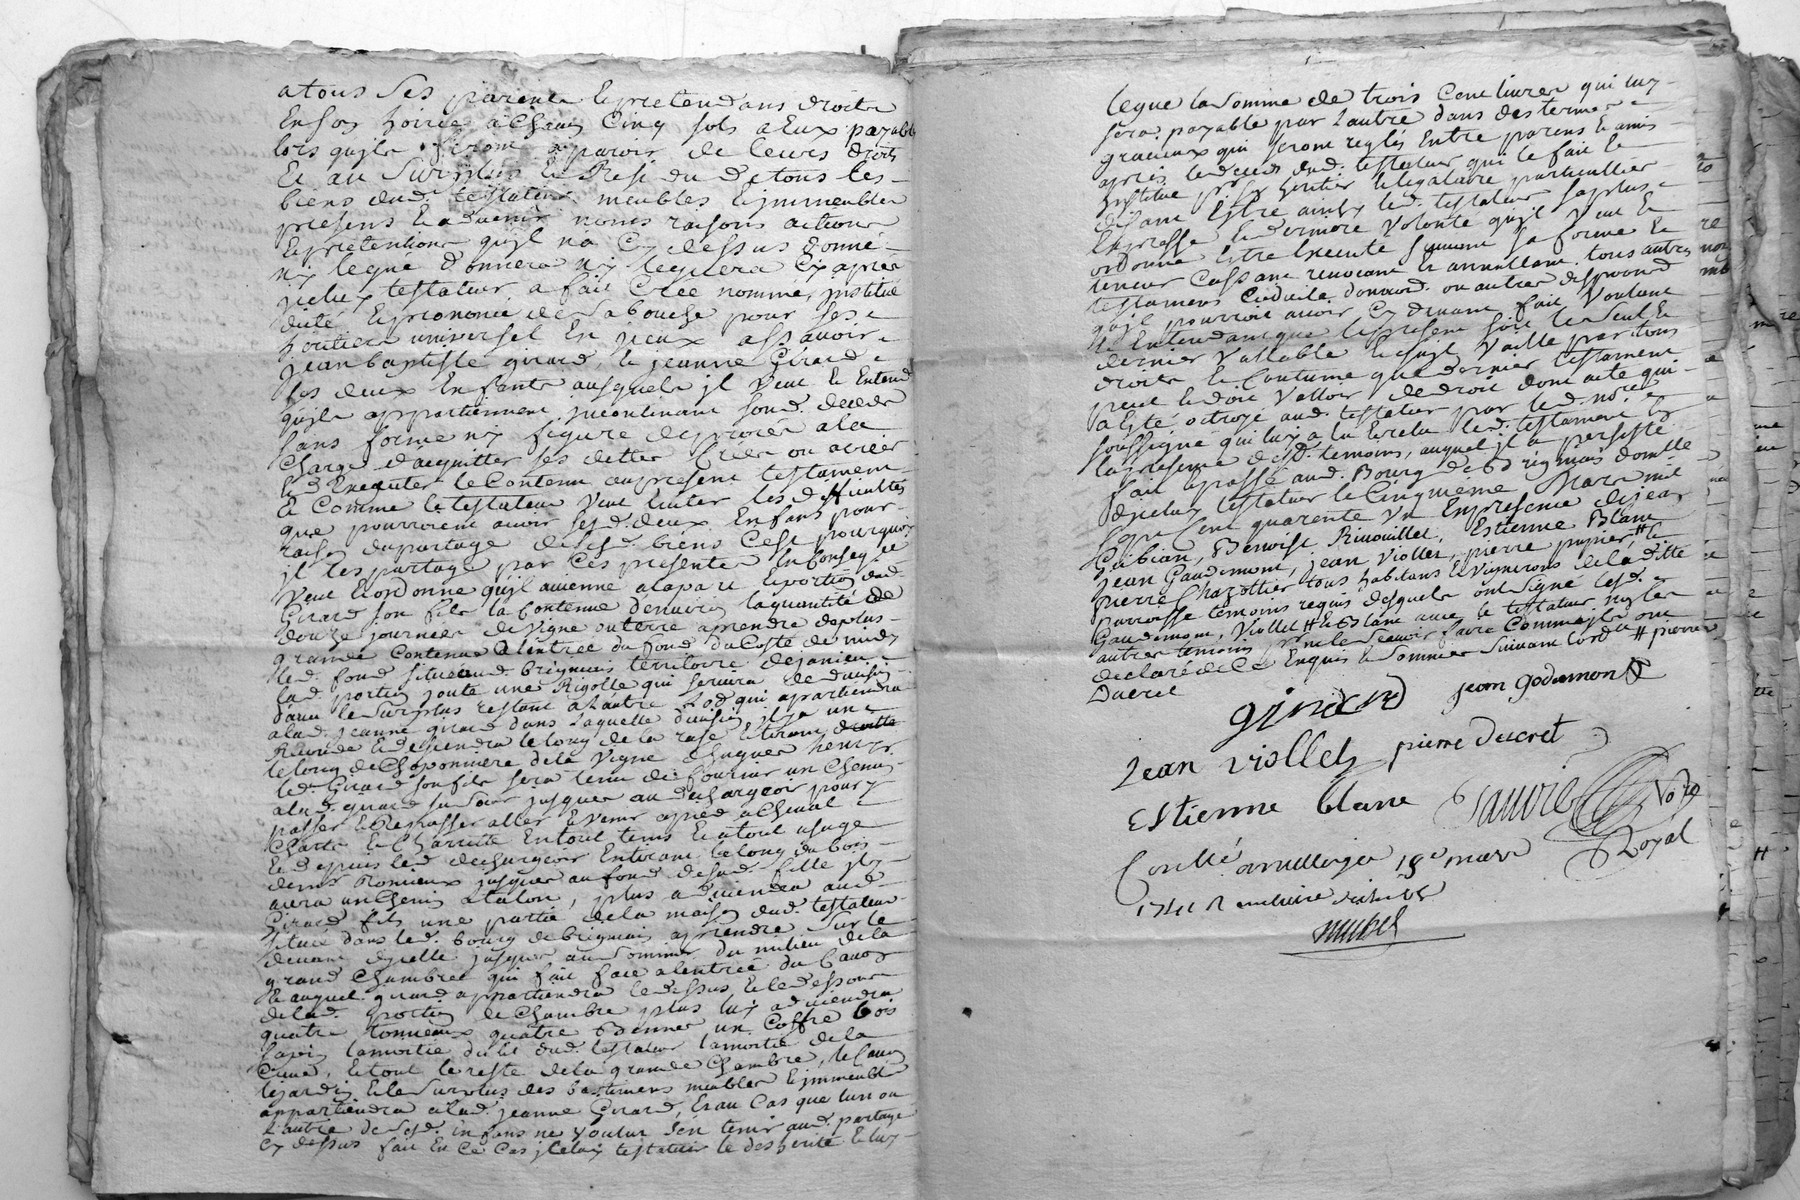 atous ses parents et pretendans droits
En son hoirie a Chacun Cinq sols a Eux payable
lors quils feront aparoir de leurs droits
Et au Surplus et Residu de tous les
biens dud. testateur meubles et immeubles
presens et advenir noms raisons actions
et pretentions quyl na Cy dessus donné
ny legué donnera ny leguera Cy apres
jceluy testateur a fait Creé nommé, jnstitué
dicté et prononcé de sa bouche pour ses
heritiers universel En jceux assavoir
jean baptiste girard, et jeanne Girard
ses deux Enfants ausquels jl veut et Entend
quyls appartiennent jncontinant sond. deceds
sans forme ny figure de proces a la
Charge d'acquitter ses dettes Creés ou a creer
Et d'Executer le Contenu au present testament
Et Comme le testateur veut Eviter les difficultés
que pourroient avoir sesd. deux Enfans pour
raison du partage de sesd. biens C'est pourquoy
jl les partage par Ces presentes En conseq.ce
veut et ordonne quil avienne a la part et portion dud.
Girard son fils la Contenue d'environ la quantité de
douze journées de vigne ou terre a prendre de plus
grande Contenue a l'entrée du fond du Costé de midy
led. fond situé aud. brignais territoire de janicu
lad. portion joute une Rigolle qui servira de division
d'avec le surplus restant a l'autre lod qui apartiendra
alad. jeanne girard dans laquelle division jl y a une
Rave et descendra le long de la rase Et tirant droitte
le long de Choponniere de la vigne
led. Girard son fils sera tenu de fournir un Chemin
alad. girard sa soeur jusques au dechargeoir pour y
passer et Repasser aller et venir apied acheval
Charte et Charette En tout tems et a tout usage
Et depuis led. dechargeoir En tirant le long du bois
jusques au fond de sad. fille jl y
aura un Chemin a talon, plus adviendra aud.
Girard fils une partie de la maison dud. testateur
situeé dans led. bourg de brignais a prendre sur le
devant d'jcelle jusques au sommier du milieu de la
grand Chambre qui fait face a l'entreé du Cavos
Et auquel girard appartiendra le dessus et le dessous
de lad. portion de Chambre plus luy adviendra
quatre tonneaux quatre Bennes un Coffre bois
sapin la moitié du lit dud. testateur la moitié de la
Cuve, et tout le reste de la grande Chambre, le Cavos
le jardin et le surplus des bastimens meubles et jmmeubles
appartiendra alad. jeanne Girard, Et au Cas que lun ou
l'autre de sesd. Enfans ne voulut sen tenir aud. partage
Cy dessus fait En Ce Cas jceluy testateur le desherite et luy
legue la somme de trois Cent livres qui luy
sera payable par l'autre dans des termes
gracieux qui seront reglés Entre parens et amis
apres le deceds dud. testateur qui le fait et
jnstitue pour son heritier et legataire particullier
disant Estre ainsy led. testateur sa plus
Expresse et derniere volonté quyl veut et
ordonne Estre Executé suivant sa forme et
teneur Cassant revocant et annullant tous autres
testamens Codicile, donnaon. ou autres dispositions
quyl pourroit avoir Cy devant fait voulant
et Entendant que le present soit le seul et
dernier vallable et quyl vaille par tous
droits et Coutume que dernier testament
peut et doit valloir de droit dont acte qui
a Esté octroyé aud. testateur par led. no.re
soussigné qui luy a lu et relu led. testament En
la presense desd. temoins, auquel jl a persisté
fait et passé aud. Bourg de Brignais domicille
d'jceluy testateur le Cinquiéme Mars mil
sept Cent quarente un En presence de jean
Cubian, Benoist Rivouillet, Estienne Blanc
jean Gaudimont, jean Viollet, pierre pupier, # et
pierre Chazottier tous habitans et vignerons de la ditte
parroisse temoins requis desquels ont signé lesd.
Gaudimont, Viollet # et Blanc avec le testateur non les
autres temoins pour ne le scavoir faire Comme jls ont
declaré de Ce Enquis et sommés suivant l'ord.ce # pierre
Ducret
girard jean godimont
Jean viollet pierre ducret
Estienne blanc Sauvie No.re
Royal
Conllé a 18e mars
1741 R